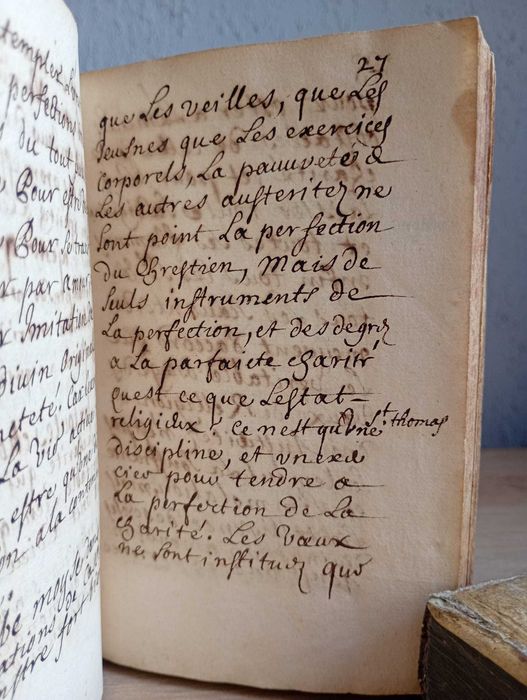 templer
perfections
du tout
Pour estre
Pour
par amour
Imitation
divin Origin
neteté. Car
La vie
estre qu'une
a la
27
que Les veilles, que Les
Jeusnes que Les exercices
corporels, La pauuveté &
Les autres austeritez ne
sont point La perfection
du Chrestien, Mais de
seuls instruments de
La perfection, et des degrez
a La parfaicte charité
quest ce que Lestat
religieux? ce nest qu'vne St. thomas
discipline, et vn exer
cice pour tendre a
La perfection de La
charité. Les Vœux
ne sont instituez que